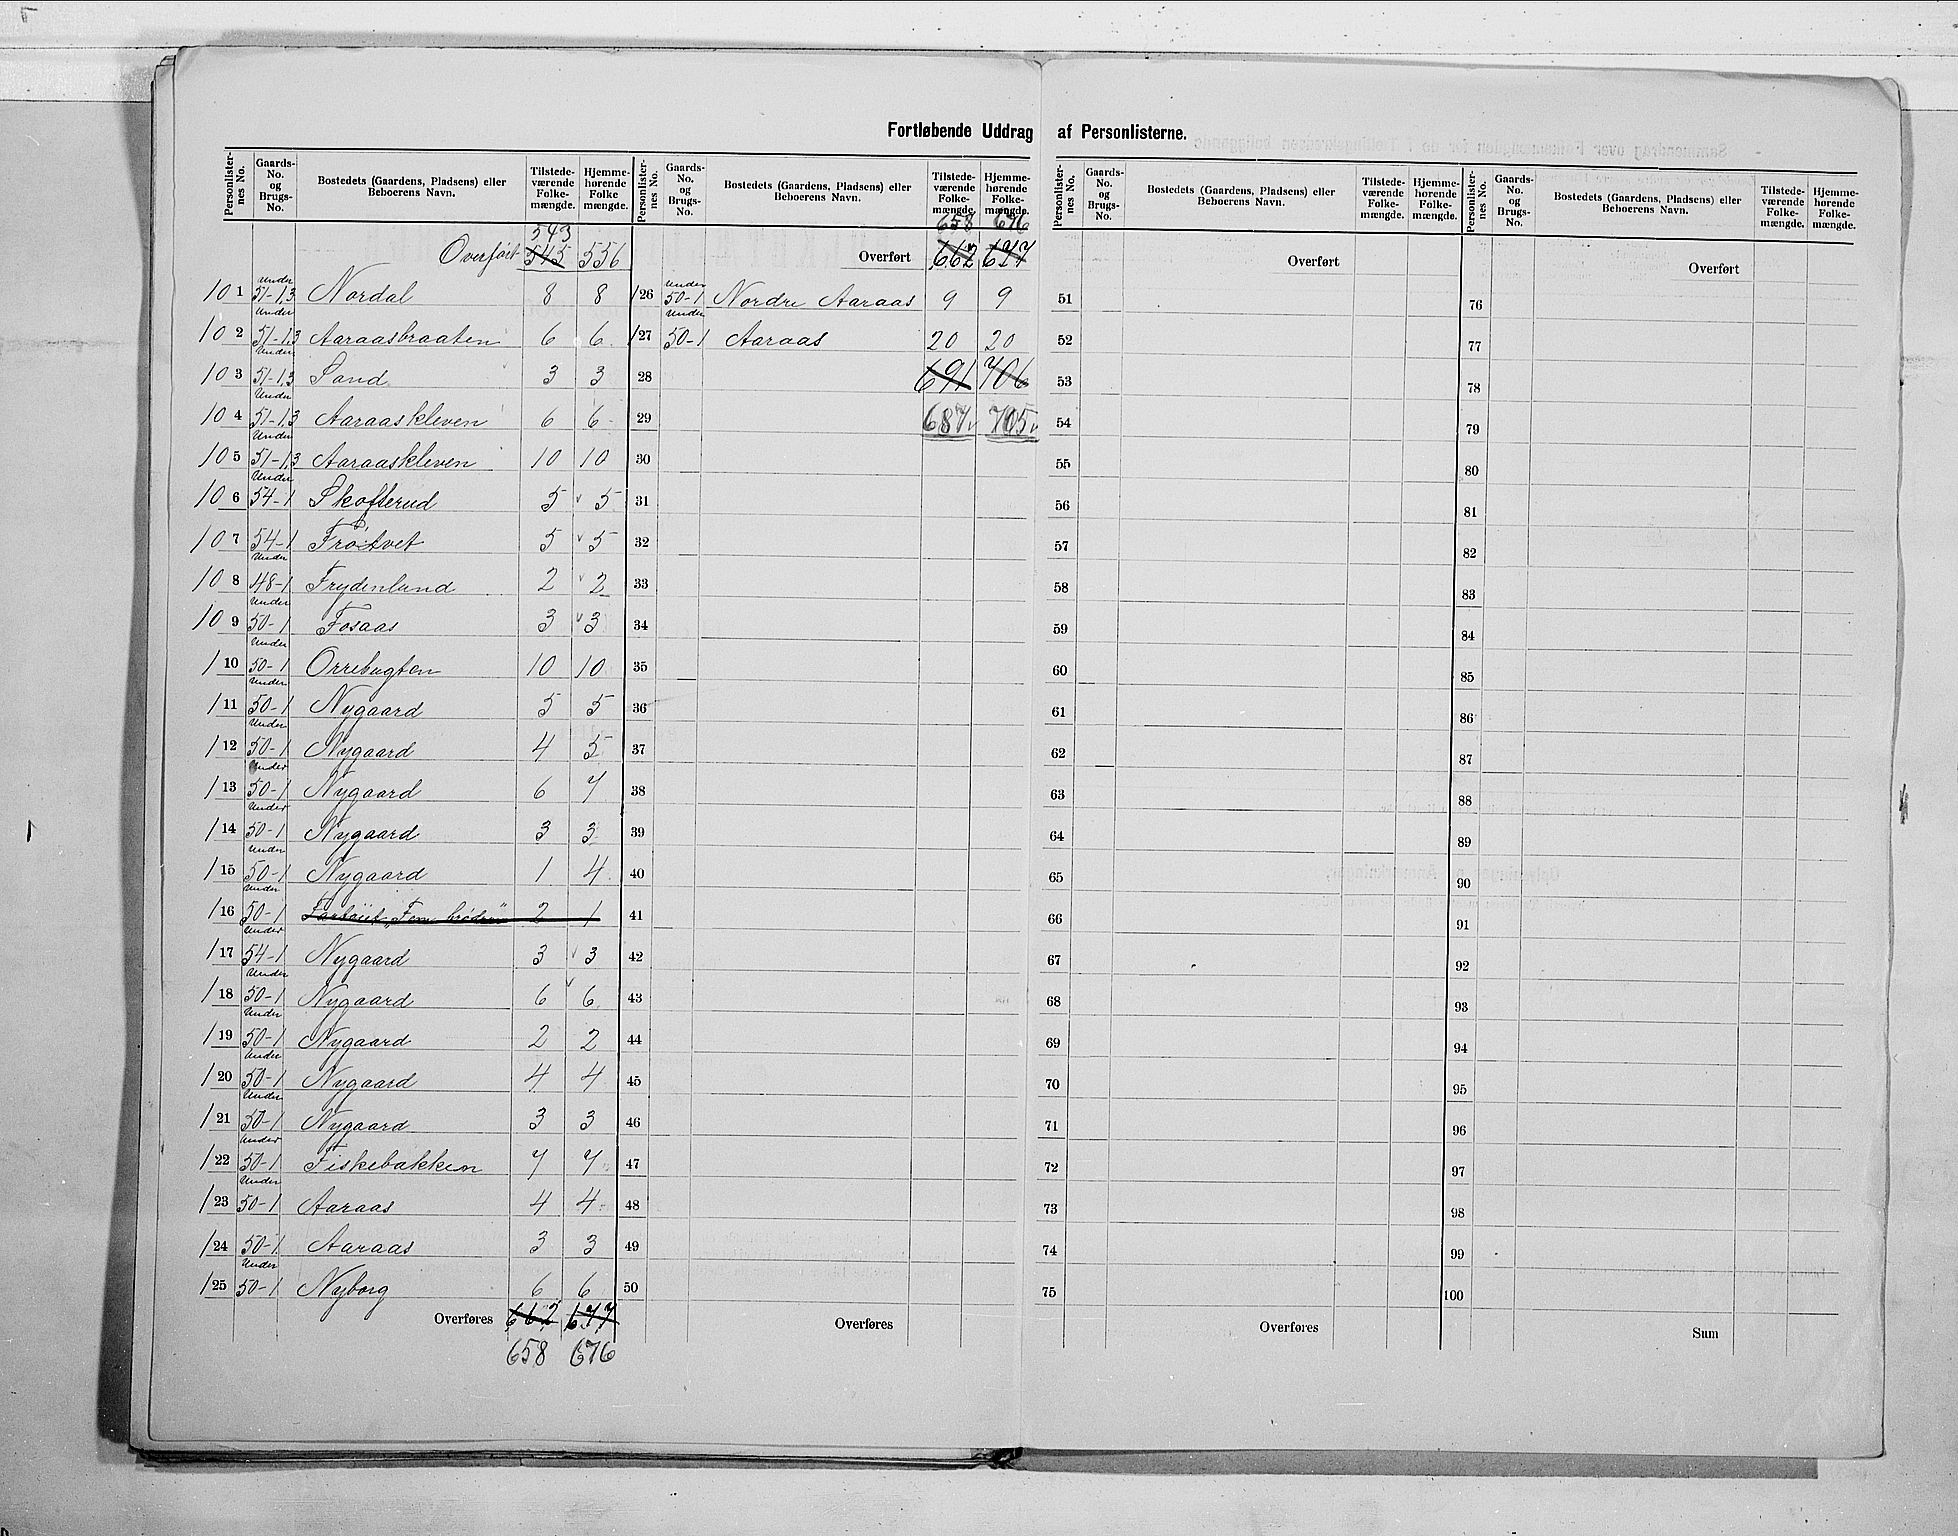 Fortløbende Uddrag af Personlisterne.
Personlister-nes No. | Gaards-No. og Brugs-No. | Bostedets (Gaardens, Pladsens) eller Beboerens Navn. | Tilstede-værende Folke-mængde. | Hjemme-hørende Folke mængde.
543
Overført 545 556
101 Under 51-1,3 Nordal 8 8
102 Under 51-1,3 Aaraasbraaten 6 6
103 Under 51-1,3 Sand 3 3
104 Under 51-1,3 Aaraaskleven 6 6
105 Under 51-1,3 Aaraaskleven 10 10
106 Under 54-1 Skofterud 5 5
107 54-1 Frötvet 5 5
108 Under 48-1 Frydenlund 2 2
109 Under 50-1 Fosaas 3 3
110 Under 50-1 Orrebugten 10 10
111 Under 50-1 Nygaard 5 5
112 Under 50-1 Nygaard 4 5
113 Under 50-1 Nygaard 6 7
114 Under 50-1 Nygaard 3 3
115 Under 50-1 Nygaard 1 4
116 Under 50-1 Fartöiet „Fem brödre" 2 1
117 Under 54-1 Nygaard 3 3
118 Under 50-1 Nygaard 6 6
119 Under 50-1 Nygaard 2 2
120 Under 50-1 Nygaard 4 4
121 Under 50-1 Nygaard 3 3
122 Under 50-1 Fiskebakken 7 7
123 Under 50-1 Aaraas 4 4
124 50-1 Aaraas 3 3
125 Under 50-1 Nyborg 6 6
Overføres 662 677
658 676
Personlister-nes No. | Gaards-No. og Brugs-No. | Bostedets (Gaardens, Pladsens) eller Beboerens Navn. | Tilstede-værende Folke-mængde. | Hjemme-hørende Folke-mængde.
658 676
Overført 662 677
126 Under 50-1 Nordre Aaraas 9 9
127 Under 50-1 Aaraas 20 20
28 691 706
29 687 705
30
31
32
33
34
35
36
37
38
39
40
41
42
43
44
45
46
47
48
49
50
Overføres
Personlister-nes No. | Gaards-No. og Brugs-No. | Bostedets (Gaardens, Pladsens) eller Beboerens Navn. | Tilstede-værende Folke-mængde. | Hjemme-hørende Folke-mængde.
Overført
51
52
53
54
55
56
57
58
59
60
61
62
63
64
65
66
67
68
69
70
71
72
73
74
75
Overføres
Personlister-nes No. | Gaards-No. og Brugs-No. | Bostedets (Gaardens, Pladsens) eller Beboerens Navn. | Tilstede-værende Folke-mængde. | Hjemme-hørende Folke-mængde.
Overført
76
77
78
79
80
81
82
83
84
85
86
87
88
89
90
91
92
93
94
95
96
97
98
99
100
Sum